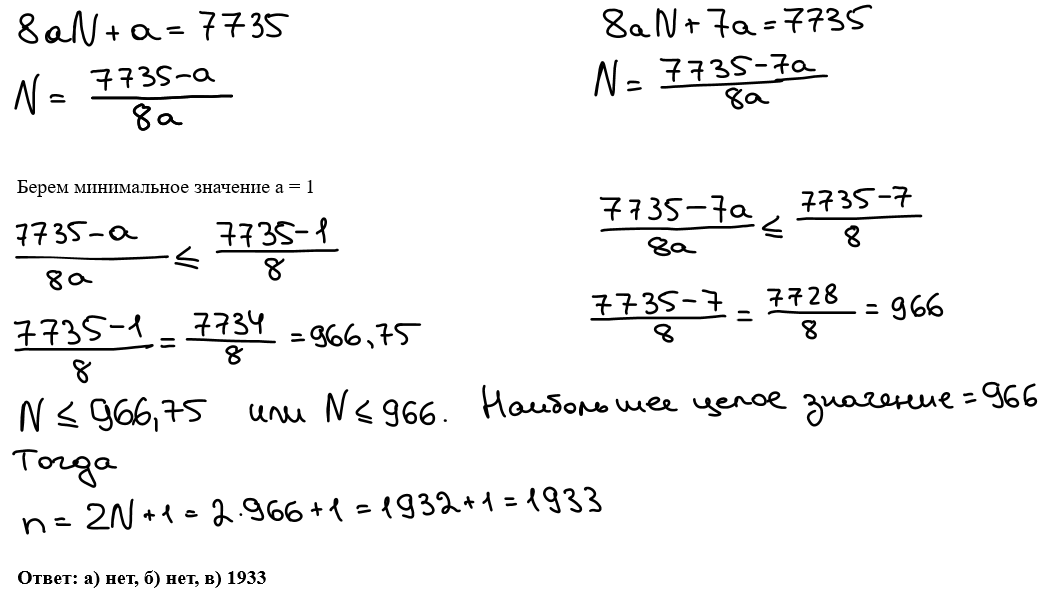 8aN + a = 7735
N = (7735 - a)/(8a)
8aN + 7a = 7735
N = (7735 - 7a)/(8a)
Берем минимальное значение a = 1
(7735 - a)/(8a) ≤ (7735 - 1)/8
(7735 - 1)/8 = 7734/8 = 966,75
(7735 - 7a)/(8a) ≤ (7735 - 7)/8
(7735 - 7)/8 = 7728/8 = 966
N ≤ 966,75 или N ≤ 966. Наибольшее целое значение = 966
Тогда
n = 2N + 1 = 2·966 + 1 = 1932 + 1 = 1933
Ответ: а) нет, б) нет, в) 1933